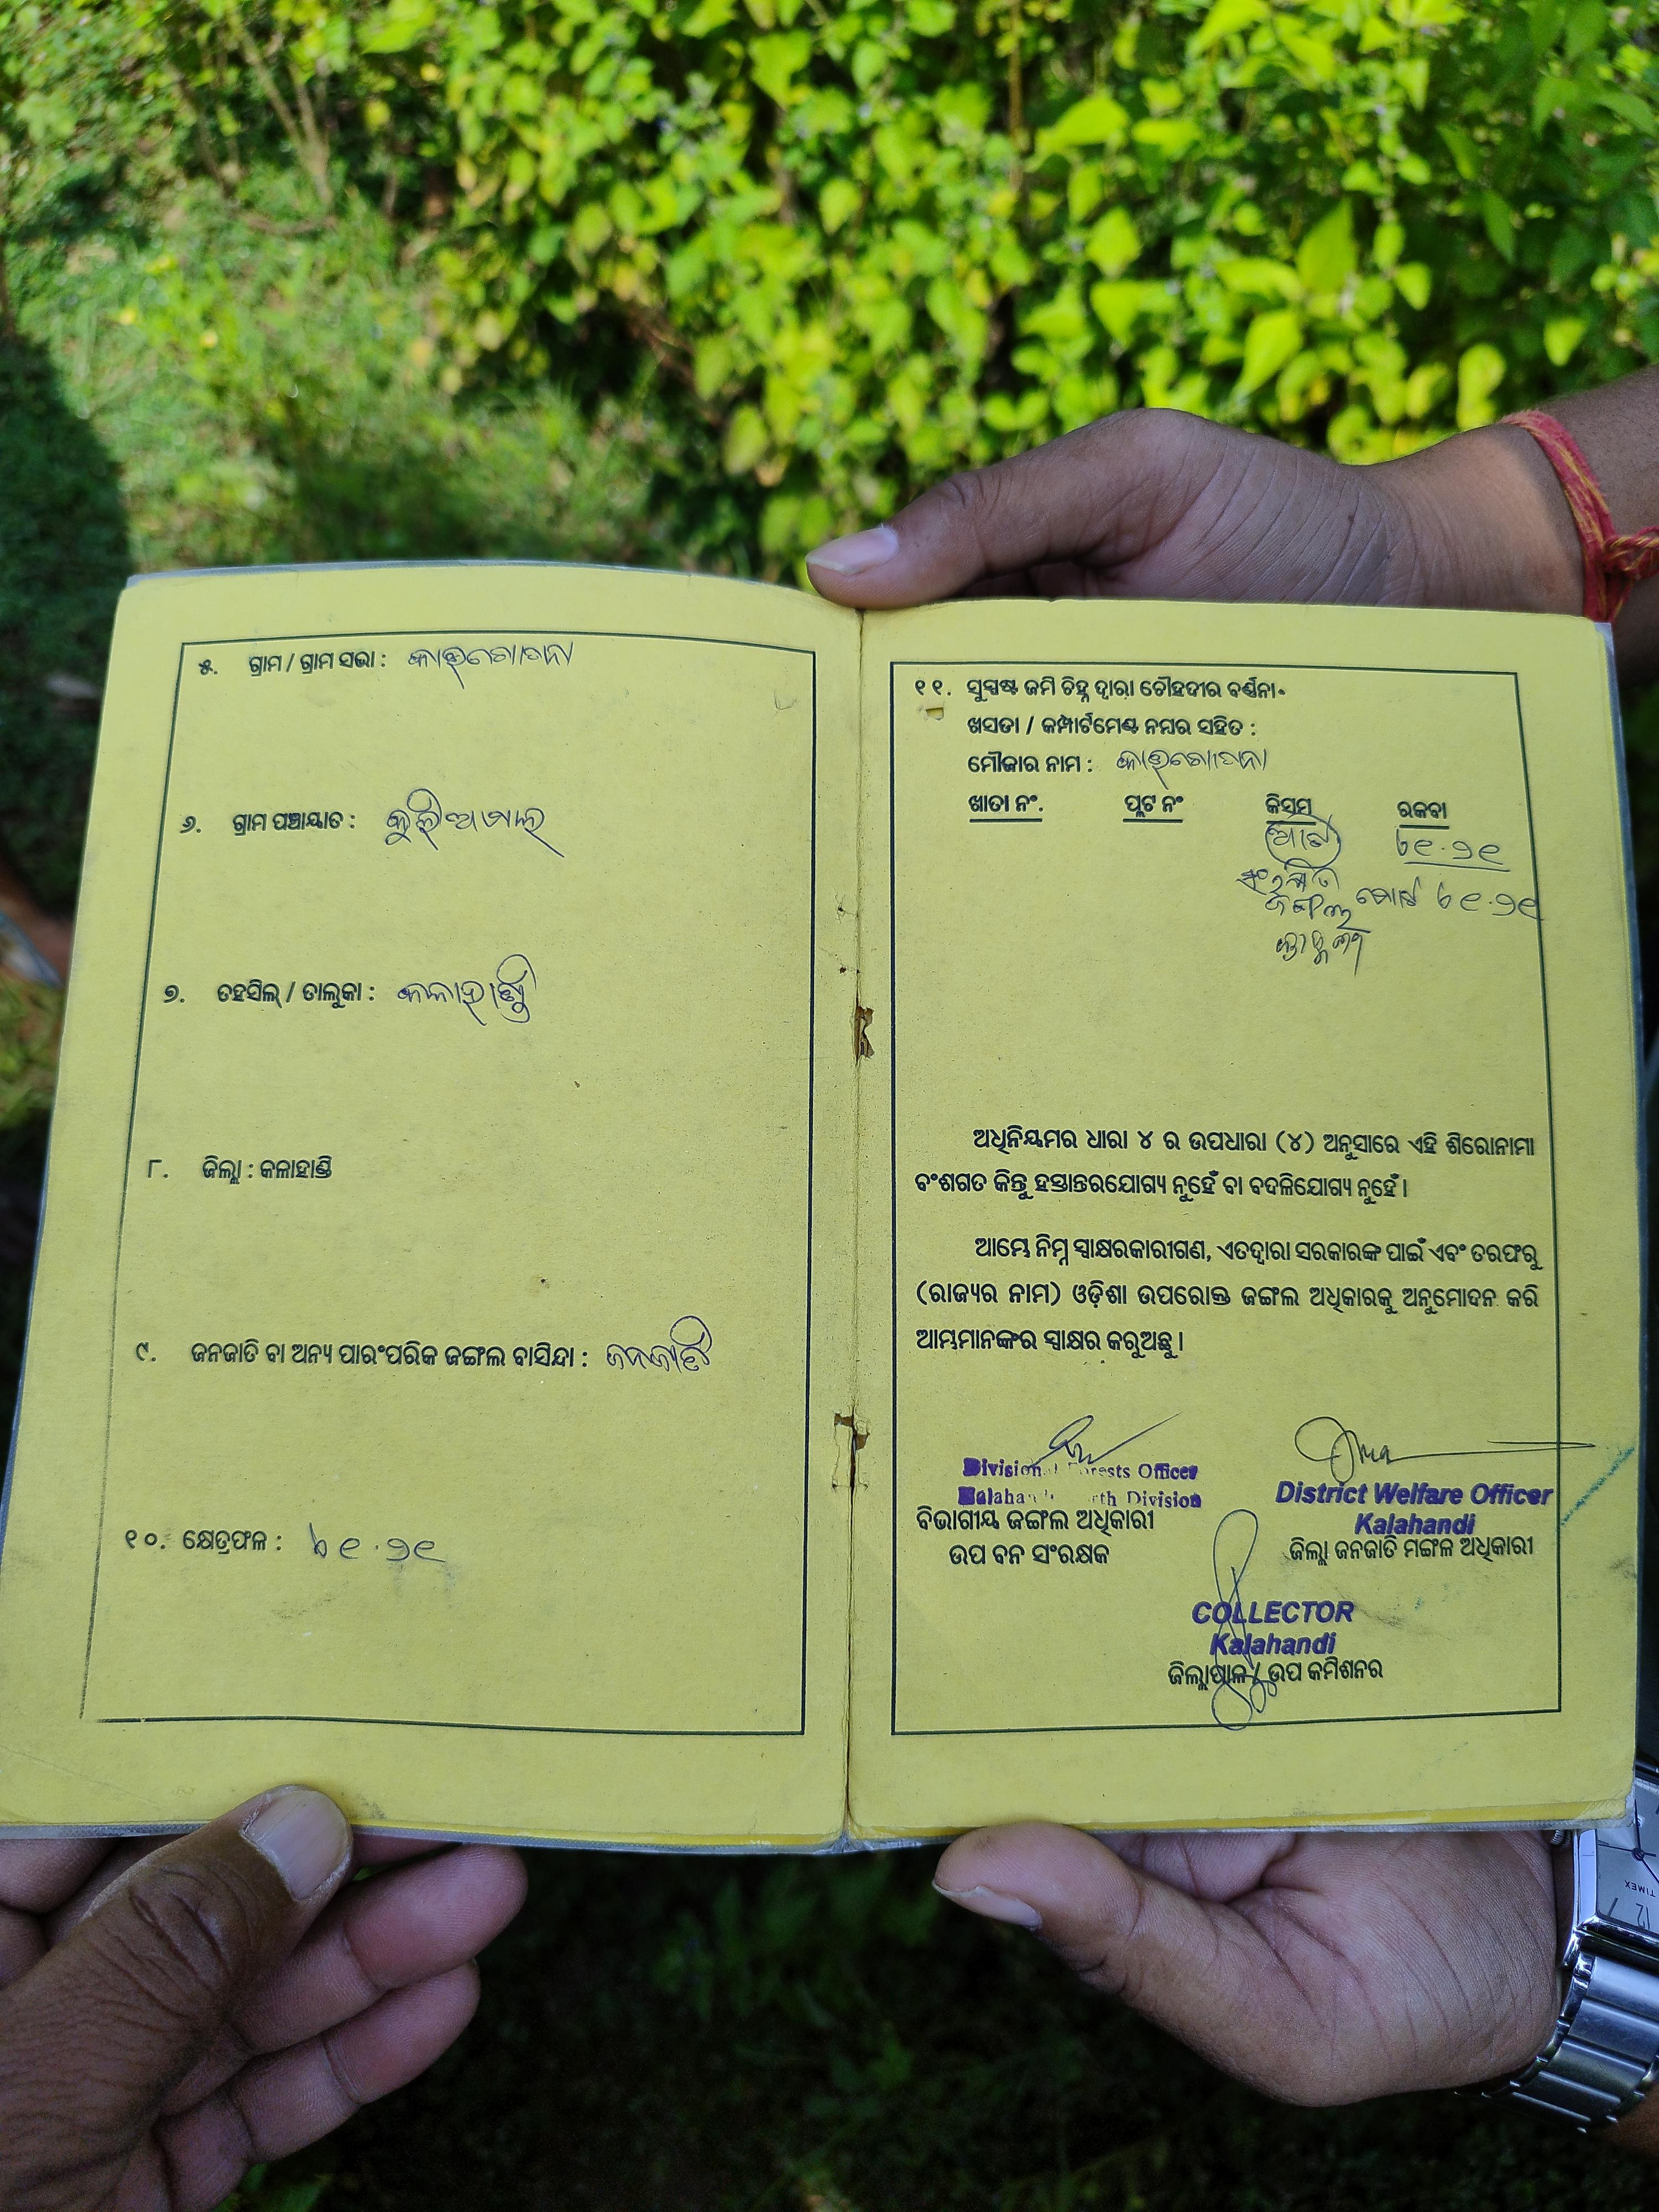 ୫. ଗ୍ରାମ / ଗ୍ରାମ ସଭା :
୬. ଗ୍ରାମ ପଞ୍ଚାୟାତ :
୭. ତହସିଲ୍ / ତାଲୁକା : କଳାହାଣ୍ଡି
୮. ଜିଲ୍ଲା : କଳାହାଣ୍ଡି
୯. ଜନଜାତି ବା ଅନ୍ୟ ପାରଂପରିକ ଜଙ୍ଗଲ ବାସିନ୍ଦା : ଜନଜାତି
୧୦. କ୍ଷେତ୍ରଫଳ : ୭୧.୨୧
୧୧. ସୁସ୍ପଷ୍ଟ ଜମି ଚିହ୍ନ ଦ୍ୱାରା ଚୌହଦୀର ବର୍ଣ୍ଣନା.
ଖସଡା / କମ୍ପାର୍ଟମେଣ୍ଟ ନମ୍ବର ସହିତ :
ମୌଜାର ନାମ :
ଖାତା ନଂ. ପ୍ଲଟ ନଂ କିସମ ରକବା
ଅଧିନିୟମର ଧାରା ୪ ର ଉପଧାରା (୪) ଅନୁସାରେ ଏହି ଶିରୋନାମା
ବଂଶଗତ କିନ୍ତୁ ହସ୍ତାନ୍ତରଯୋଗ୍ୟ ନୁହେଁ ବା ବଦଳିଯୋଗ୍ୟ ନୁହେଁ ।
ଆମ୍ଭେ ନିମ୍ନ ସ୍ୱାକ୍ଷରକାରୀଗଣ, ଏତଦ୍ୱାରା ସରକାରଙ୍କ ପାଇଁ ଏବଂ ତରଫରୁ
(ରାଜ୍ୟର ନାମ) ଓଡ଼ିଶା ଉପରୋକ୍ତ ଜଙ୍ଗଲ ଅଧିକାରକୁ ଅନୁମୋଦନ କରି
ଆମ୍ଭମାନଙ୍କର ସ୍ୱାକ୍ଷର କରୁଅଛୁ ।
Divisional Forests Officer
Kalahandi North Division
ବିଭାଗୀୟ ଜଙ୍ଗଲ ଅଧିକାରୀ
ଉପ ବନ ସଂରକ୍ଷକ
District Welfare Officer
Kalahandi
ଜିଲ୍ଲା ଜନଜାତି ମଙ୍ଗଳ ଅଧିକାରୀ
COLLECTOR
Kalahandi
ଜିଲ୍ଲାପାଳ / ଉପ କମିଶନର
TIMEX
12